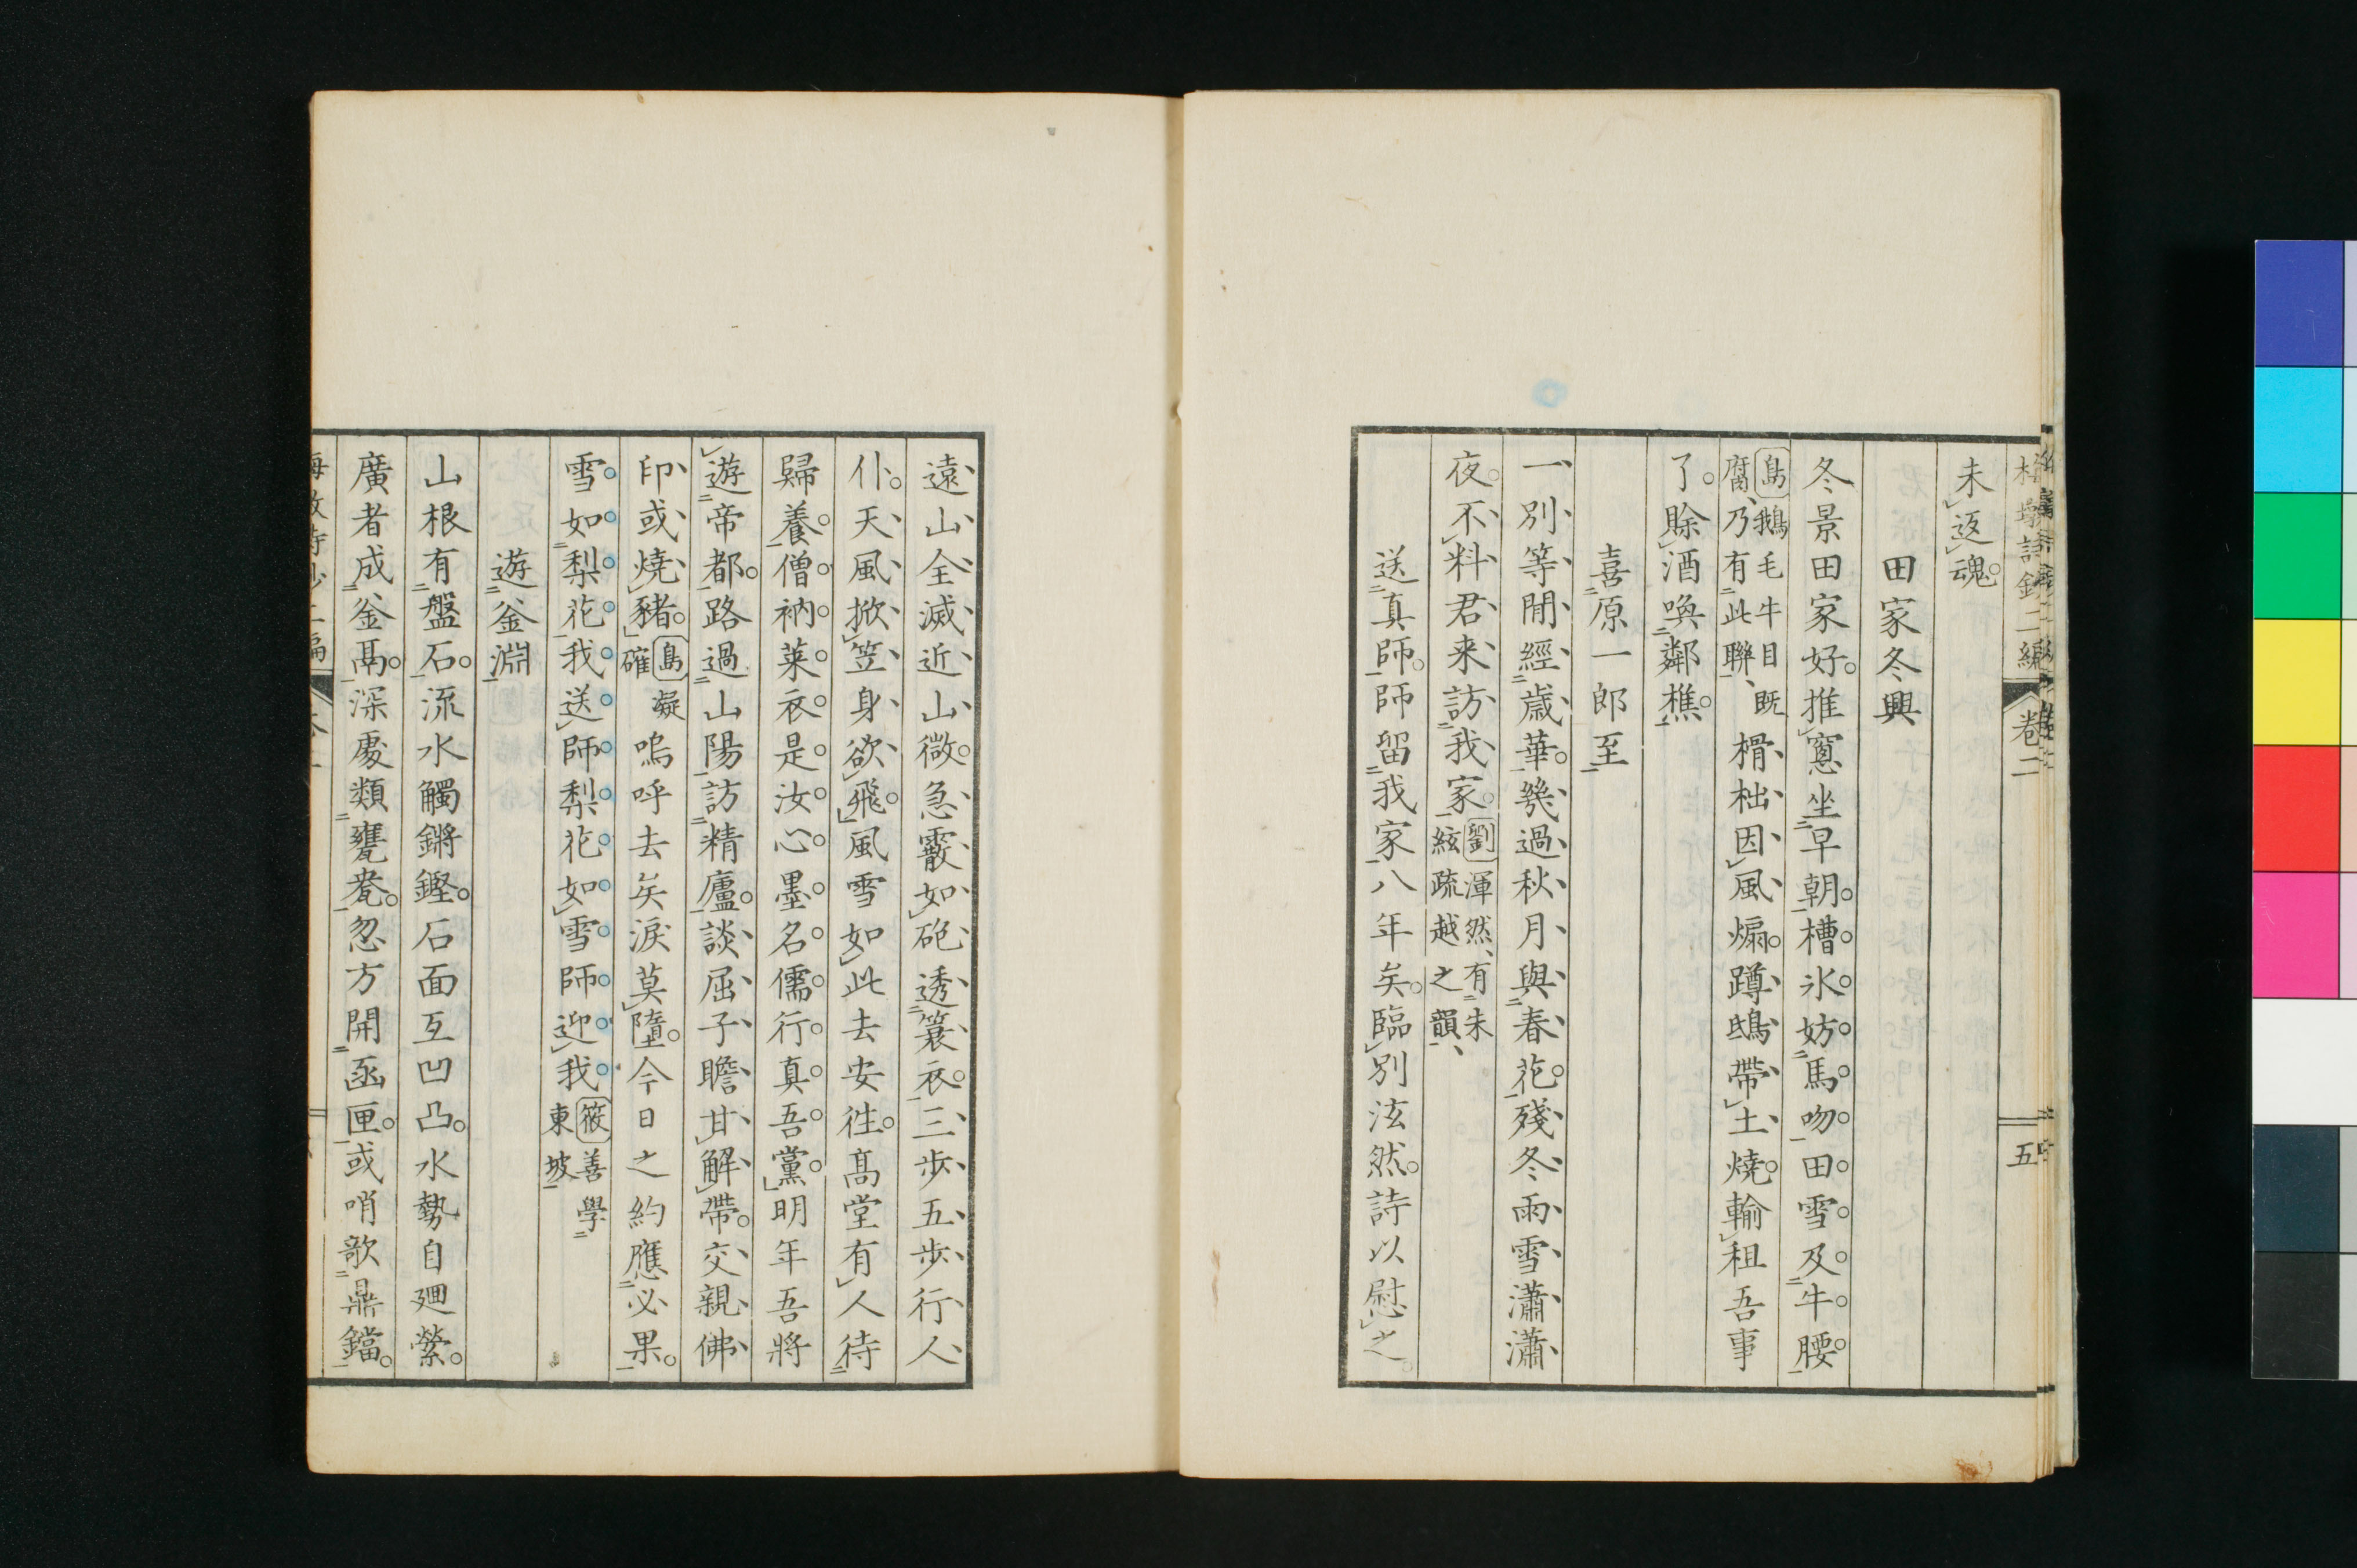 梅墩詩鈔二編 卷二 五
未返魂
田家冬興
冬景田家好推窻坐早朝槽氷妨馬吻田雪及牛腰
島鵝毛牛目既
腐乃有此聯
榾柮因風煽蹲鴟帶土燒輸租吾事
了賒酒喚鄰樵
喜原一郎至
一別等閒經歳華幾過秋月與春花殘冬雨雪瀟瀟
夜不料君来訪我家
劉渾然有朱
絃疏越之韻
送真師師留我家八年矣臨別泫然詩以慰之
遠山全滅近山微急霰如砲透簑衣三歩五歩行人
仆天風掀笠身欲飛風雪如此去安往髙堂有人待
歸養僧衲萊衣是汝心墨名儒行真吾黨明年吾將
遊帝都路過山陽訪精廬談屈子瞻甘解帶交親佛
印或燒豬
島凝
確
嗚呼去矣淚莫墮今日之約應必果
雪如梨花我送師梨花如雪師迎我
筱善學
東坡
遊釜淵
山根有盤石流水觸鏘鏗石面互凹凸水勢自廻縈
廣者成釜鬲深處類甕甇忽方開函匣或哨歌鼎鐺